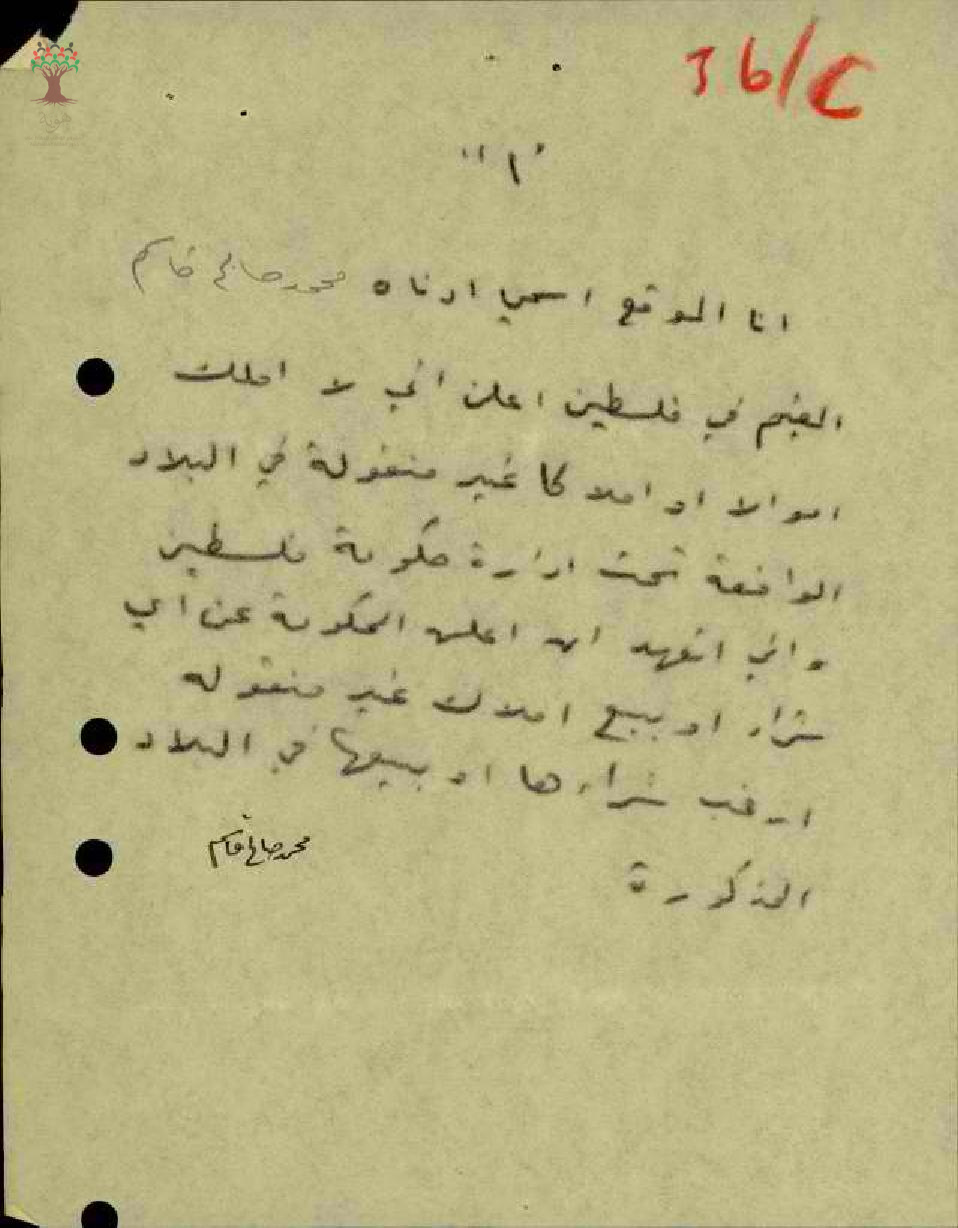 36/C
"١"
انا الموقع اسمي ادناه محمد صالح قاسم
المقيم في فلسطين اعلن اني لا املك
اموالا او املاكا غير منقولة في البلاد
الواقعة تحت ادارة حكومة فلسطين
واني اتعهد ان اعلن الحكومة عن اي
شراء او بيع املاك غير منقوله
ارغب شراءها او بيعها في البلاد
المذكورة
محمد صالح قاسم
هوية